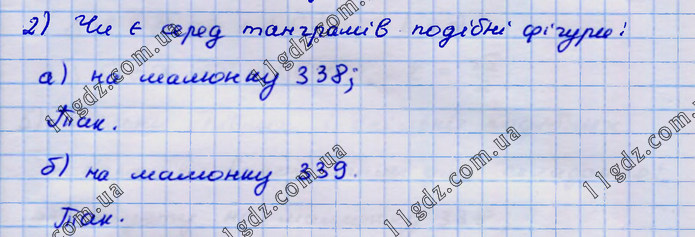 2) Чи є серед танграмів подібні фігури:
а) на малюнку 338;
Так.
б) на малюнку 339.
Так.
11gdz.com.ua
11gdz.com.ua
11gdz.com.ua
11gdz.com.ua
11gdz.com.ua
11gdz.com.ua